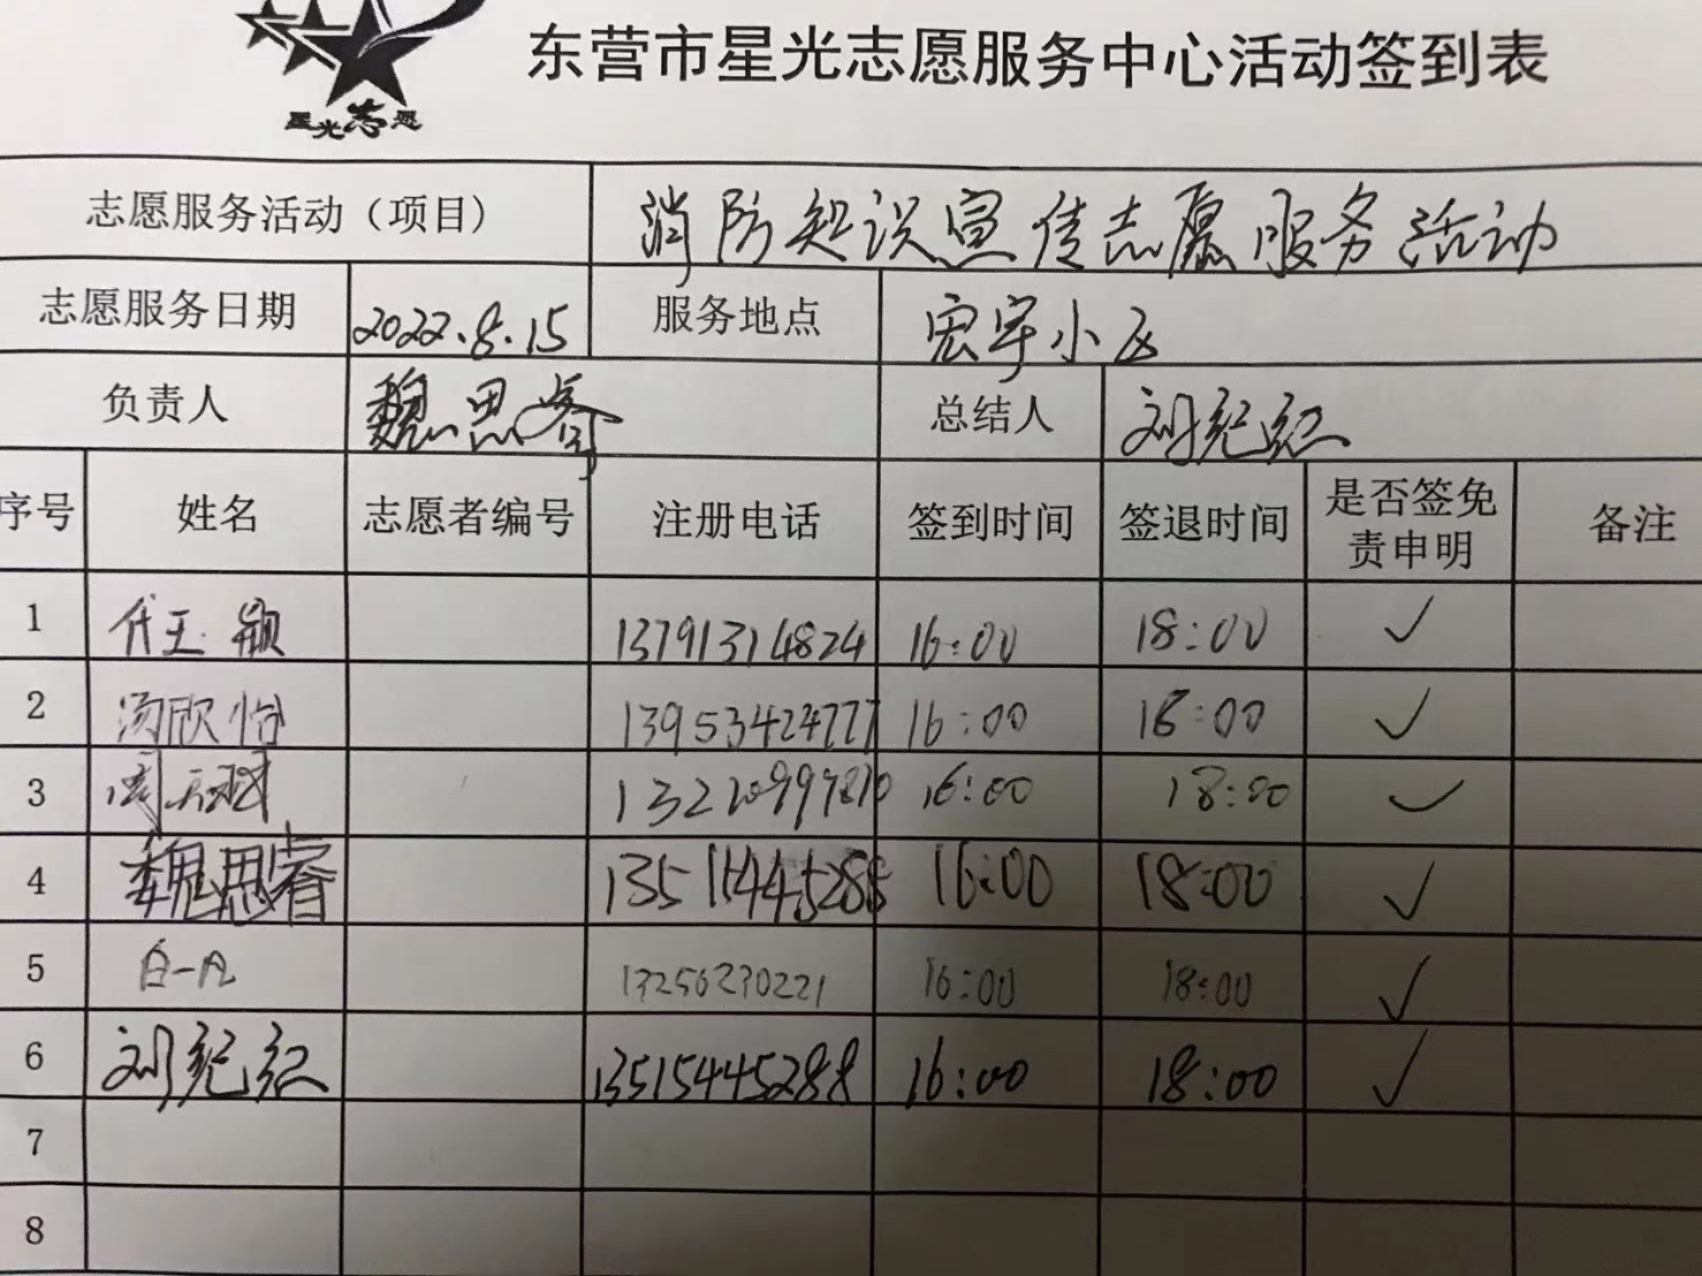 东营市星光志愿服务中心活动签到表
星光志愿
志愿服务活动（项目） 消防知识宣传志愿服务活动
志愿服务日期 2022.8.15 服务地点 宏宇小区
负责人 魏思睿 总结人 刘纪红
序号 姓名 志愿者编号 注册电话 签到时间 签退时间 是否签免责申明 备注
1 代玉颖 13791314824 16:00 18:00 ✓
2 汤欣怡 13953424777 16:00 18:00 ✓
3 周 16:00 18:00 ✓
4 魏思睿 16:00 18:00 ✓
5 白一凡 13256230221 16:00 18:00 ✓
6 刘纪红 13515445288 16:00 18:00 ✓
7
8